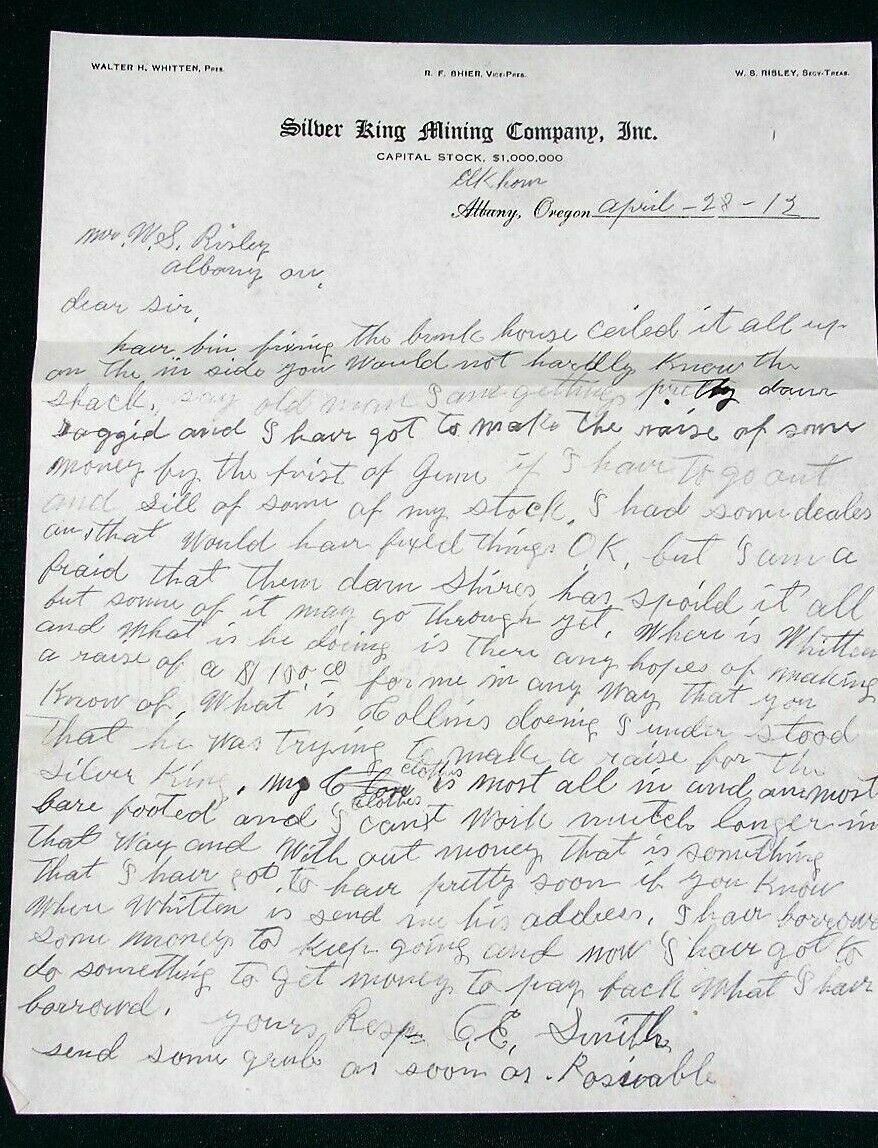 WALTER H. WHITTEN, Pres.
R. F. SHIER, Vice-Pres.
W. S. RISLEY, Secy-Treas.
Silver King Mining Company, Inc.
CAPITAL STOCK, $1,000,000
Elkhorn
Albany, Oregon April - 28 - 12
Mr. W. S. Risley
Albany or,
dear sir,
hair bin fixing the bunk house ceiled it all up
on the in side you would not hardly know the
shack. say old man I am getting pretty darn
raggid and I hair got to make the raise of some
money by the first of June if I hair to go out
and sill of some of my stock. I had some deales
on, that would hair fixed things OK, but I am a
fraid that them darn Shires has spoild it all
but some of it may go through yet. Where is Whitten
and what is he doing is there any hopes of making
a raise of a $100.00 for me in any way that you
know of. What is Hollins doeing I under stood
that he was trying to make a raise for the
Silver King. my clothes is most all in and am most
clothes
bare footed and I cant work mutch longer in
that way and with out money that is something
that I hair got to hair pretty soon if you know
where Whitten is send me his address. I hair borrowd
some money to keep going and now I hair got to
do something to get money to pay back what I hair
borrowd.
yours Resp C. E. Smith
send some grub as soon as Posivable